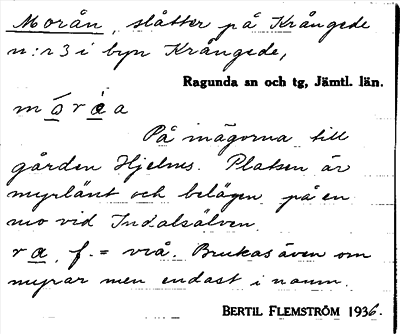 Morån, slåtter på Krångede
n:r 3 i byn Krångede,
Ragunda sn och tg, Jämtl. län.
På inägorna till
gården Hjelmes. Platsen är
myrlänt och belägen på en
mo vid Indalsälven.
f. = vrå. Brukas även om
myrar men endast i namn.
BERTIL FLEMSTRÖM 1936.